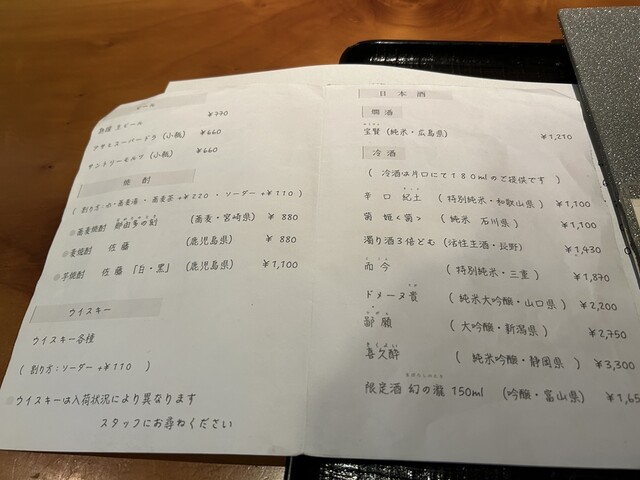 ビール
生ビール ¥770
アサヒスーパードラ(小瓶) ¥660
サントリーモルツ(小瓶) ¥660
焼酎
(割り方:水・蕎麦湯・蕎麦茶+¥220・ソーダー+¥110)
蕎麦焼酎 那由多の刻 (蕎麦・宮崎県) ¥880
麦焼酎 佐藤 (鹿児島県) ¥880
芋焼酎 佐藤「白・黒」 (鹿児島県) ¥1,100
ウイスキー
ウイスキー各種
(割り方:ソーダー+¥110)
ウイスキーは入荷状況により異なります
スタッフにお尋ねください
日本酒
燗酒
宝賢(純米・広島県) ¥1,210
冷酒
(冷酒は片口にて180mlのご提供です)
辛口 紀土 (特別純米・和歌山県) ¥1,100
菊姫<菊> (純米 石川県) ¥1,100
濁り酒3倍どむ(活性生酒・長野) ¥1,430
而今 (特別純米・三重) ¥1,870
ドメーヌ貴 (純米大吟醸・山口県) ¥2,200
鄙願 (大吟醸・新潟県) ¥2,750
喜久酔 (純米吟醸・静岡県) ¥3,300
限定酒 幻の瀧 150ml (吟醸・富山県) ¥1,65